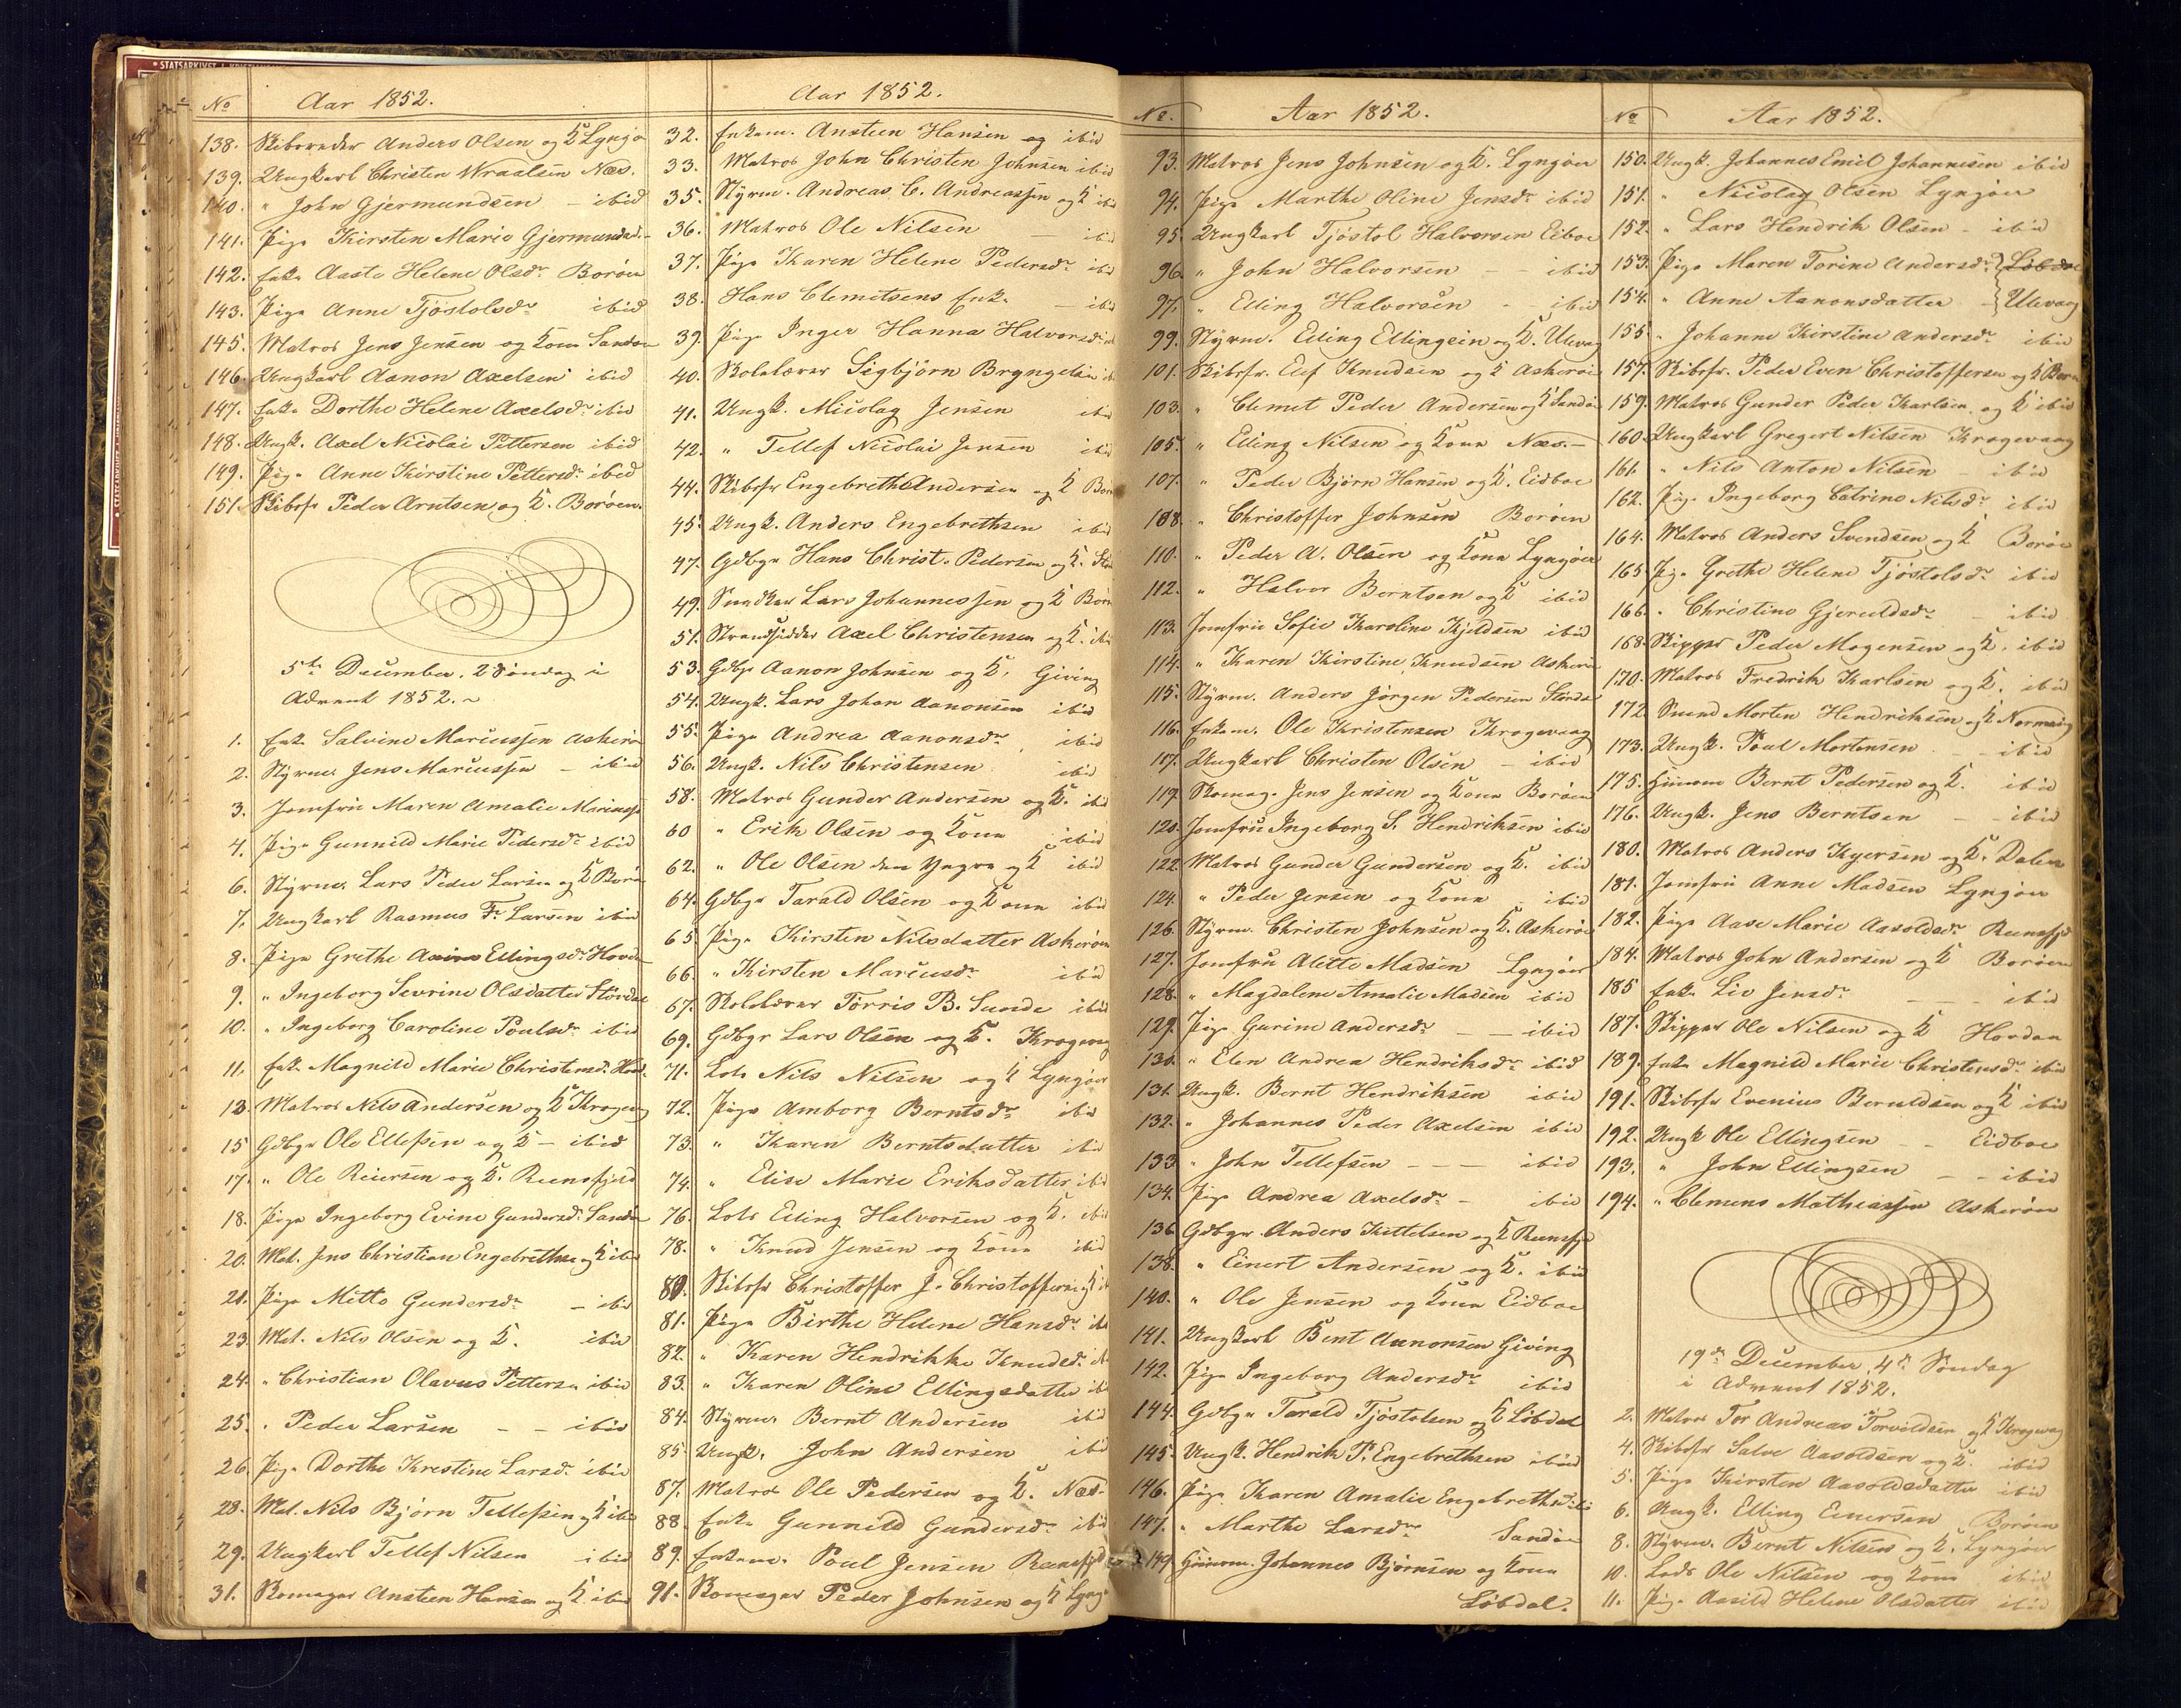 STATSARKIVET I KRISTIANSAND
No Aar 1852.
138. Skibsreder Anders Olsen og K Lyngø
139. Ungkarl Christen Wraalsen Næs.
140. " John Gjermundsen — ibid
141. Pige Kirsten Marie Gjermundsd.
142. Enke Aaste Helene Olsdr Borøen
143. Pige Anne Tjøstolsdr ibid
145. Matros Jens Jensen og Kone Sandøen
146. Ungkarl Aanon Axelsen ibid
147. Enke Dorthe Helene Axelsdr ibid
148. Ungk. Axel Nicolai Pettersen ibid
149. Pige Anne Kirstine Pettersdr ibid
151. Skibsfr Peder Arntsen og K. Borøen.
5te December, 2 Söndag i
Advent 1852.
1. Enke Salvine Mariussen Askerøen
2. Styrm. Jens Mariussen — ibid
3. Jomfru Maren Amalie Mariuss
4. Pige Gunnild Marie Pedersdr ibid
6. Styrm. Lars Peder Larsen og K Borøen
7. Ungkarl Rasmus Fr. Larsen ibid
8. Pige Grethe Ellingsdr Hovda
9. " Ingeborg Sevrine Olsdatter Stövdal
10. " Ingeborg Caroline Poulsdr ibid
11. Enke Magnild Marie Christensd. Hovd.
13. Matros Nils Andersen og K Krogevag
15 Gdbgr Ole Ellefsen og K — ibid
17. " Ole Reiersen og K. Reensfjeld
18. Pige Ingeborg Evine Gundersd. Sandøen
20. Mat. Jens Christian Engebrethsen og K ibid
21. Pige Mette Gundersdr — ibid
23. Mat. Nils Olsen og K. ibid
24. " Christian Olavus Pettersen ibid
25. " Peder Larsen — — ibid
26. Pige Dorthe Krestine Larsd. ibid
28. Mat. Nils Bjørn Tellefsen og K ibid
29. Ungkarl Tellef Nilsen ibid
31. Skomager Ansteen Hansen og K. ibid
Aar 1852.
32. Enkem. Ansteen Hansen og ibid
33. Matros John Christen Johnsen ibid
35. Styrm. Andreas C. Andreassen og K ibid
36. Matros Ole Nilsen — ibid
37. Pige Karen Helene Pedersdr ibid
38. Hans Clemetsens Enke — ibid
39. Pige Inger Hanna Halvorsdr
40. Skolelærer Sigbjörn Bryngelsen
41. Ungk. Nicolay Jensen ibid
42. " Tellef Nicolai Jensen ibid
44. Skibsfr Engebreth Andersen og K Bor
45. Ungk. Anders Engebrethsen ibid
47. Gdbgr Hans Christ. Pedersen og K.
49. Snedker Lars Johannessen og K Borø
51. Strandsidder Axel Christensen og K. ibid
53. Gdbgr Aanon Johnsen og K. Giving
54. Ungk. Lars Johan Aanonsen ibid
55. Pige Andrea Aanonsdr ibid
56. Ungk. Nils Christensen ibid
58. Matros Gunder Andersen og K. ibid
60 " Erik Olsen og Kone ibid
62. " Ole Olsen den Yngre og K ibid
64. Gdbgr Tarald Olsen og Kone ibid
65. Pige Kirsten Nilsdatter Askerøen
66. " Kirsten Mariusdr ibid
67. Skolelærer Torris B. Sunde ibid
69. Gdbgr Lars Olsen og K. Krogevag
71. Lods Nils Nilsen og K Lyngøer
72. Pige Amborg Berntsdr ibid
73. " Karen Berntsdatter ibid
74. " Elise Marie Eriksdatter ibid
76. Lods Elling Halvorsen og K. ibid
78. " Knud Jensen og Kone ibid
80. Skibsfr Christoffer J. Christoffersen og K
81. Pige Birthe Helene Hansdr ibid
82. " Karen Hendrikke Knudsd.
83. " Karen Oline Ellingsdatter ibid
84. Styrm. Bernt Andersen ibid
85. Ungk. John Andersen ibid
87. Matros Ole Pedersen og K. Næs.
88. Enke Gunnild Gundersdr ibid
89. Enkem. Poul Jensen Reensfjeld
91. Skomager Peder Johnsen og K Lyngø
No. Aar 1852.
93. Matros Jens Johnsen og K. Lyngøer
94. Pige Marthe Oline Jensdr ibid
95. Ungkarl Tjöstol Halvorsen Eiboe
96. " John Halvorsen — — ibid
97. " Elling Halvorsen — ibid
99. Styrm. Elling Ellingsen og K. Ulevag
101. Skibsfr. Elef Knudsen og K Askerøen
103. " Clemet Peder Andersen og K Sandøen
105. " Elling Nilsen og Kone Næs.—
107. " Peder Bjørn Hansen og K. Eidboe
108. " Christoffer Johnsen Borøen
110. " Peder A. Olsen og Kone Lyngøer
112. " Halvor Berntsen og K ibid
113. Jomfru Sofie Karoline Kjeldsen ibid
114. " Karen Kirstine Knudsen Askerøen
115. Styrm. Anders Jørgen Pedersen Stövdal
116. Enkem. Ole Kristensen Krogevaag
117. Ungkarl Christen Olsen — ibid
119. Skomag. Jens Jensen og Kone Borøen
120. Jomfru Ingeborg S. Hendriksen ibid
122. Matros Gunder Gundersen og K. ibid
124. " Peder Jensen og Kone ibid
126. Styrm. Christen Johnsen og K. Askerøen
127. Jomfru Alette Madsen Lyngøer
128. " Magdalene Amalie Madsen ibid
129. Pige Gurine Andersdr — — ibid
130. " Elen Andrea Hendriksdr ibid
131. Ungk. Bernt Hendriksen ibid
132. " Johannes Peder Axelsen ibid
133. " John Tellefsen — — — ibid
134. Pige Andrea Axelsdr — ibid
136. Gdbgr. Anders Kittelsen og K Reensfj
138. " Einert Andersen og K. ibid
140. " Ole Jensen og Kone Eidboe
141. Ungkarl Bent Aanonsen Giving
142. Pige Ingeborg Andersdr ibid
144. Gdbgr Tarald Tjöstolsen og K Löbdal
145. Ungk. Hendrik P. Engebrethsen ibid
146. Pige Karen Amalie Engebrethsd.
147. " Marthe Larsdr Sandøen
149. Huusm. Johannes Bjørnsen og Kone
Löbdal.
No Aar 1852.
150. Ungk. Johannes Emil Johannesen ibid
151. " Nicolay Olsen Lyngøer
152. " Lars Hendrik Olsen — ibid
153. Pige Maren Torine Andersdr Löbdal
154. " Anne Aanonsdatter — Ulevag
155. " Johanne Kirstine Andersdr ibid
157. Skibsfr. Peder Even Christoffersen og K Borø
159. Matros Gunder Peder Karlsen og K ibid
160. Ungkarl Gregert Nilsen Krogevaag
161. " Nils Anton Nilsen — ibid
162. Pige Ingeborg Catrine Nilsdr ibid
164. Matros Anders Svendsen og K Borøe
165. Pige Grethe Helene Tjöstolsdr ibid
166. " Christine Gjeruldsdr — ibid
168. Skipper Peder Mogensen og K. ibid
170. Matros Fredrik Karlsen og K. ibid
172. Smed Morten Hendriksen og K Normanvig
173. Ungk. Poul Mortensen — — ibid
175. Huusm Bernt Pedersen og K. ibid
176. Ungk. Jens Berntsen — — ibid
180. Matros Anders Kyersen og K. Dalen
181. Jomfru Anne Madsen Lyngøer
182. Pige Aase Marie Aasoldsdr Reensfjd
184. Matros John Andersen og K Borøen
185 Enke Liv Jensdr — — — ibid
187. Skipper Ole Nilsen og K Hovdan
189. Enke Magnild Marie Christensdr ibid
191. Skibsfr Evenius Beruldsen og K ibid
192. Ungk Ole Ellingsen — — Eidboe
193. " John Ellingsen — — ibid
194. " Clemens Mathiassen Askerøen
19de December, 4de Søndag
i Advent 1852.
2. Matros Tor Andreas Torvildsen og K Krogevag
4. Skibsfr Salve Aasoldsen og K. ibid
5. Pige Kirsten Aasoldsdatter ibid
6. Ungk. Elling Einersen Borøen
8. Styrm. Bernt Nilsen og K. Lyngøer
10. Lods Ole Nilsen og Kone ibid
11. Pige Aasild Helene Olsdatter ibid